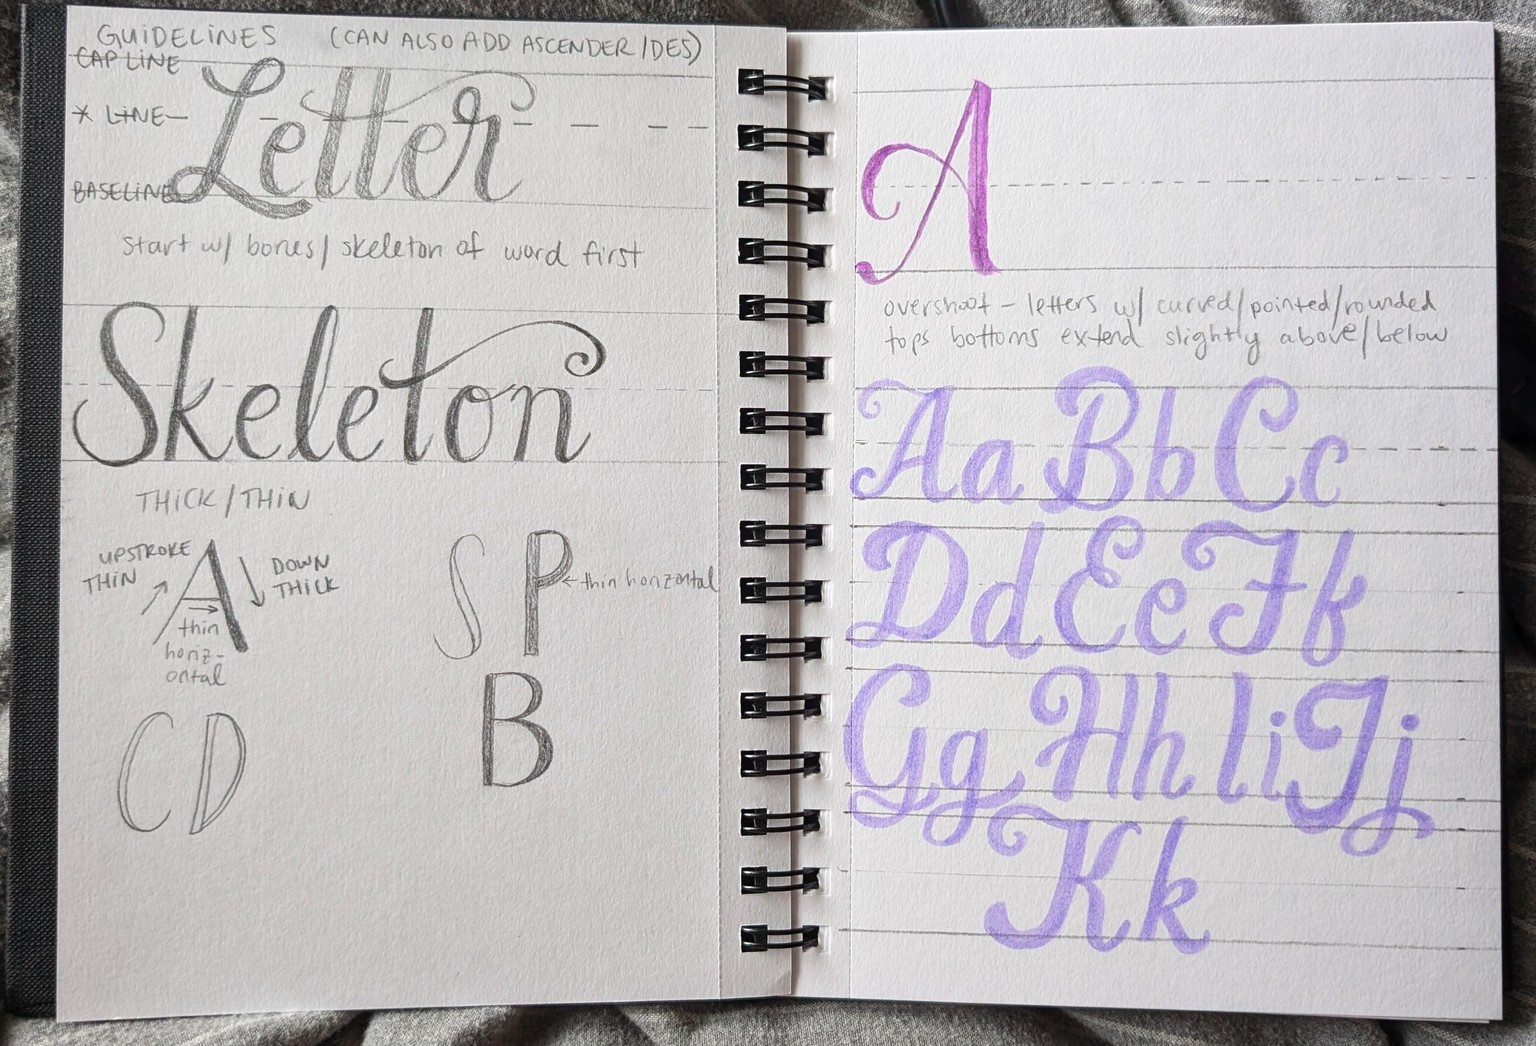 GUIDELINES (CAN ALSO ADD ASCENDER/DES)
CAP LINE
Letter
* LINE
BASELINE
start w/ bones/skeleton of word first
Skeleton
THICK/THIN
UPSTROKE
THIN
A
DOWN
THICK
thin
horiz-
ontal
S P
thin horizontal
B
C D
A
overshoot - letters w/ curved/pointed/rounded
tops bottoms extend slightly above/below
Aa Bb Cc
Dd Ee Ff
Gg Hh Ii Jj
Kk